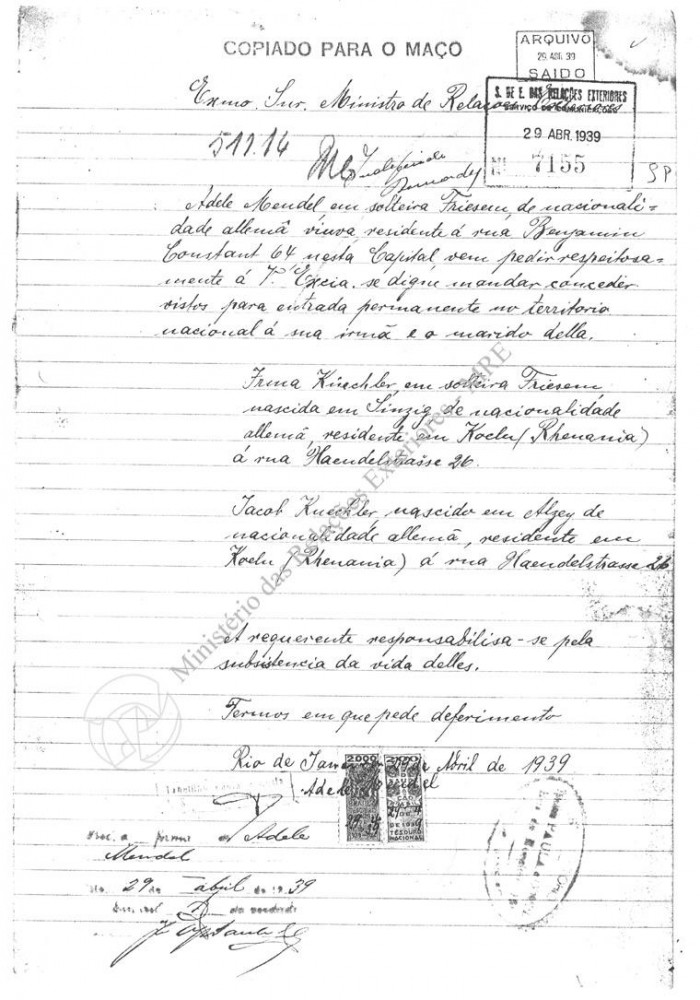 COPIADO PARA O MAÇO
ARQUIVO
29 ABR 39
SAIDO
Exmo. Snr. Ministro de Relacoes Exteriores
S. DE E. DAS RELAÇÕES EXTERIORES
SERVIÇO DE COMUNICAÇÕES
29 ABR. 1939
Nº 7155
511.14
SP
Adele Mendel, em solteira Friesem, de nacionali=
dade allemã viuva, residente á rua Benjamin
Constant 64 nesta Capital, vem pedir respeitosa-
mente á V. Excia. se digne mandar conceder
vistos para entrada permanente no territorio
nacional á sua irmã e o marido della.
Irma Küechler, em solteira Friesem,
nascida em Sinzig, de nacionalidade
allemã, residente em Koeln (Rhenania)
á rua Haendelstrasse 26.
Jacob Kuechler, nascido em Alzey de
nacionalidade allemã, residente em
Koeln (Rhenania) á rua Haendelstrasse 26
A requerente responsabilisa-se pela
subsistencia da vida delles.
Termos em que pede deferimento
Rio de Janeiro 29 de Abril de 1939
Adele Mendel
2000 2000
TESOURO
NACIONAL
Adele
Mendel
29 de abril de 1939
da verdade
PAULA
Ministério das Relações Exteriores - MRE